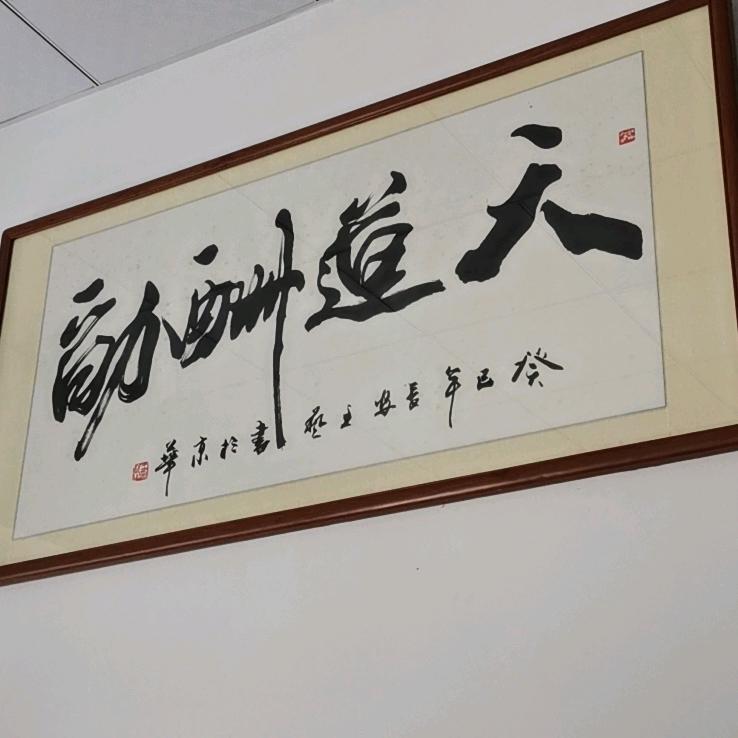 天道酬勤
癸巳年長安王藝書於京華